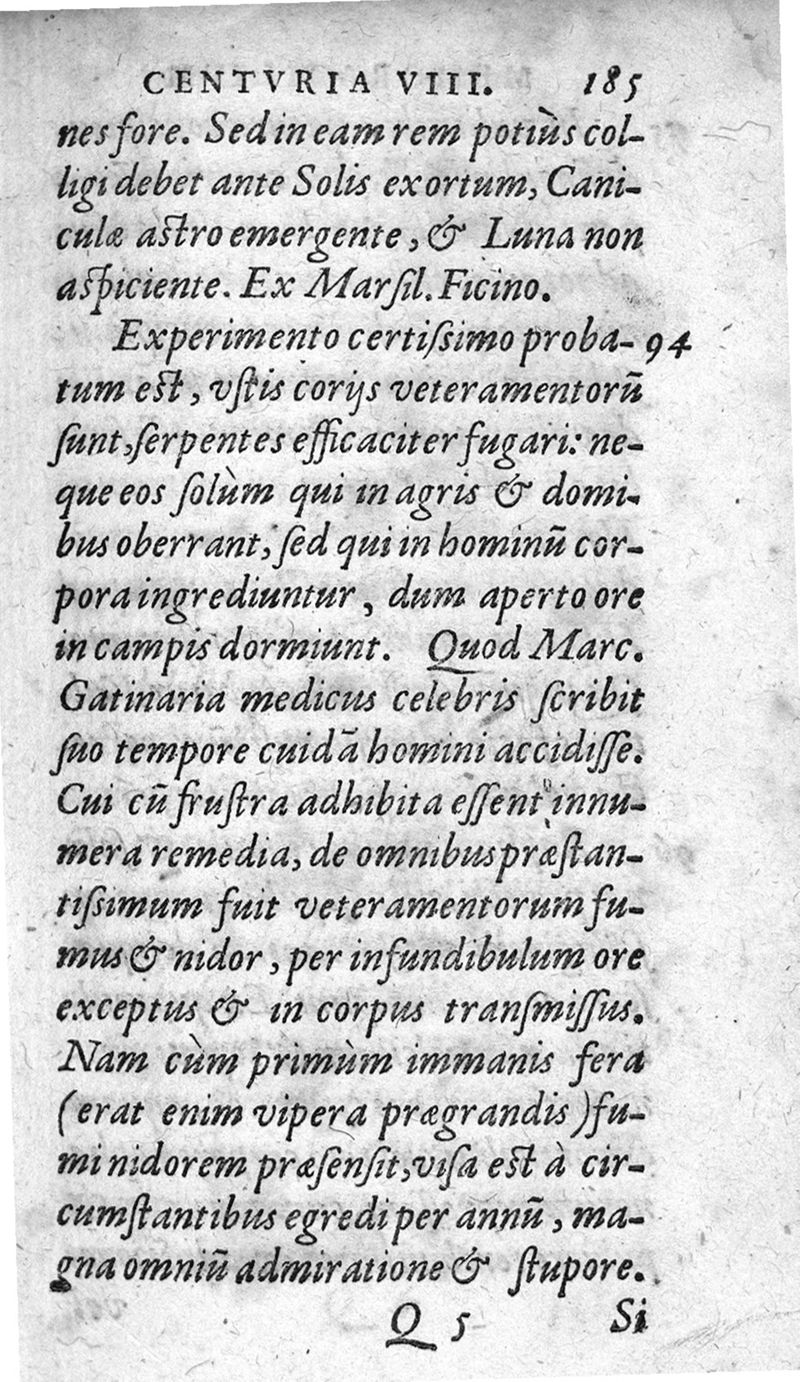 CENTVRIA VIII. 185
nes fore. Sed in eam rem potiùs col-
ligi debet ante Solis exortum, Cani-
culæ astro emergente, & Luna non
aspiciente. Ex Marsil. Ficino.
Experimento certissimo proba- 94
tum est, vstis corijs veteramentorū
sunt, serpentes efficaciter fugari: ne-
que eos solùm qui in agris & domi-
bus oberrant, sed qui in hominū cor-
pora ingrediuntur, dum aperto ore
in campis dormiunt. Quod Marc.
Gatinaria medicus celebris scribit
suo tempore cuidā homini accidisse.
Cui cū frustra adhibita essent innu-
mera remedia, de omnibus præstan-
tissimum fuit veteramentorum fu-
mus & nidor, per infundibulum ore
exceptus & in corpus transmissus.
Nam cùm primùm immanis fera
(erat enim vipera prægrandis) fu-
mi nidorem præsensit, visa est à cir-
cumstantibus egredi per annū, ma-
gna omniū admiratione & stupore.
Q 5 Si